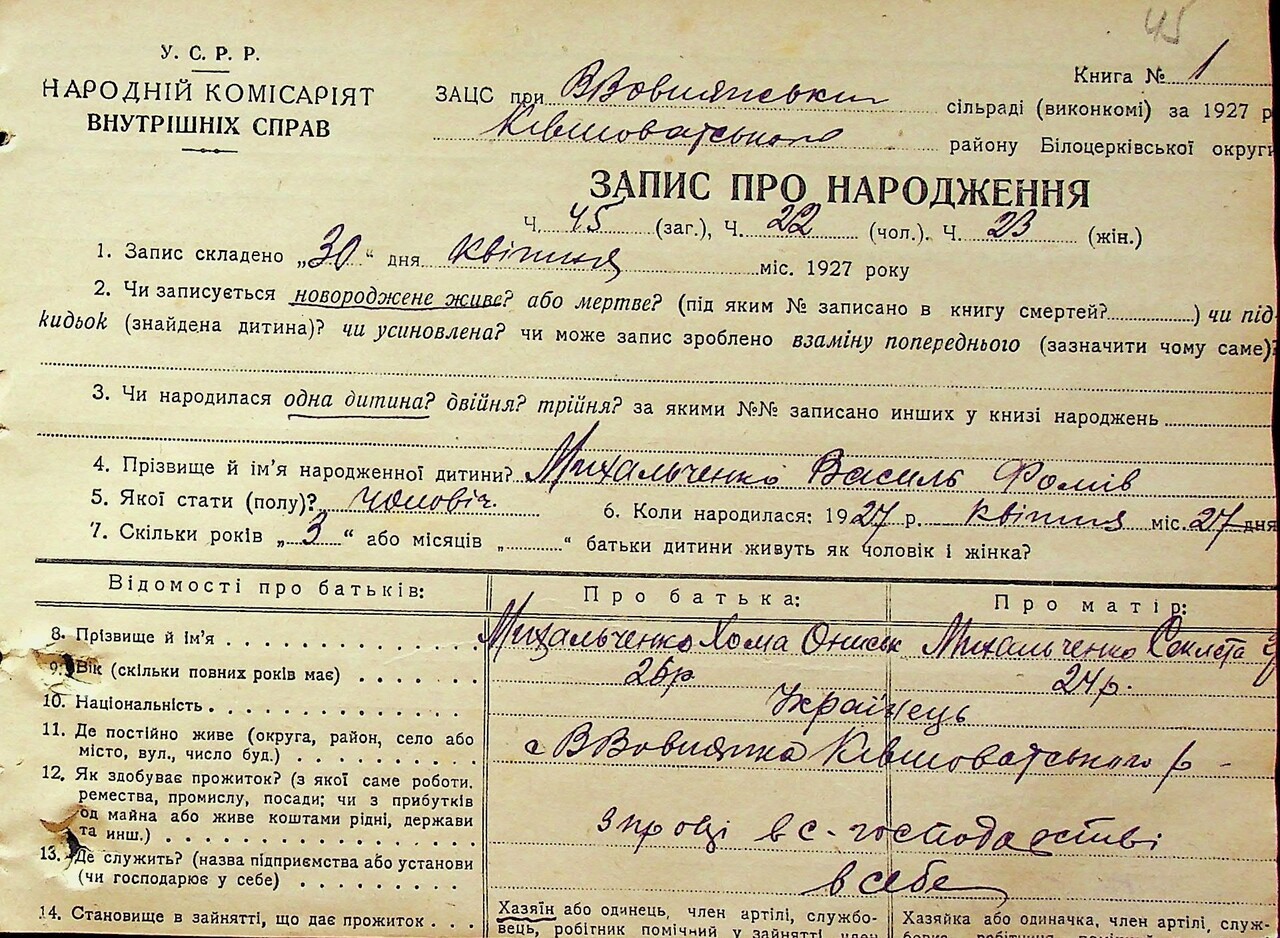 45
У. С. Р. Р.
НАРОДНІЙ КОМІСАРІЯТ
ВНУТРІШНІХ СПРАВ
Книга № 1
ЗАЦС при ВВовнянськи сільраді (виконкомі) за 1927 р
Ківшоватського району Білоцерківської округи
ЗАПИС ПРО НАРОДЖЕННЯ
Ч. 45 (заг.), Ч. 22 (чол.). Ч. 23 (жін.)
1. Запис складено „30“ дня квітня міс. 1927 року
2. Чи записується новороджене живе? або мертве? (під яким № записано в книгу смертей?) чи під-
кидьок (знайдена дитина)? чи усиновлена? чи може запис зроблено взаміну попереднього (зазначити чому саме)?
3. Чи народилася одна дитина? двійня? трійня? за якими №№ записано инших у книзі народжень
4. Прізвище й ім’я народженної дитини? Михальченко Василь Фомів
5. Якої стати (полу)? чоловіч. 6. Коли народилася: 1927 р. квітня міс. 27 дня
7. Скільки років „3“ або місяців „“ батьки дитини живуть як чоловік і жінка?
Відомості про батьків: Про батька: Про матір:
8. Прізвище й ім’я Михальченко Хома Ониськ Михальченко
9. Вік (скільки повних років має) 26р 24р.
10. Національність Українець
11. Де постійно живе (округа, район, село або
місто, вул., число буд.) с ВВовнянка Ківшоватського р
12. Як здобуває прожиток? (з якої саме роботи.
ремества, промислу, посади; чи з прибутків
од майна або живе коштами рідні, держави
та инш.) з праці в с-господарстві
13. Де служить? (назва підприємства або установи
(чи господарює у себе) в себе
14. Становище в зайнятті, що дає прожиток
Хазяїн або одинець, член артілі, службо-
вець, робітник помічний у зайнятті, член
Хазяйка або одиначка, член артілі, служ-
бовка, робітниця